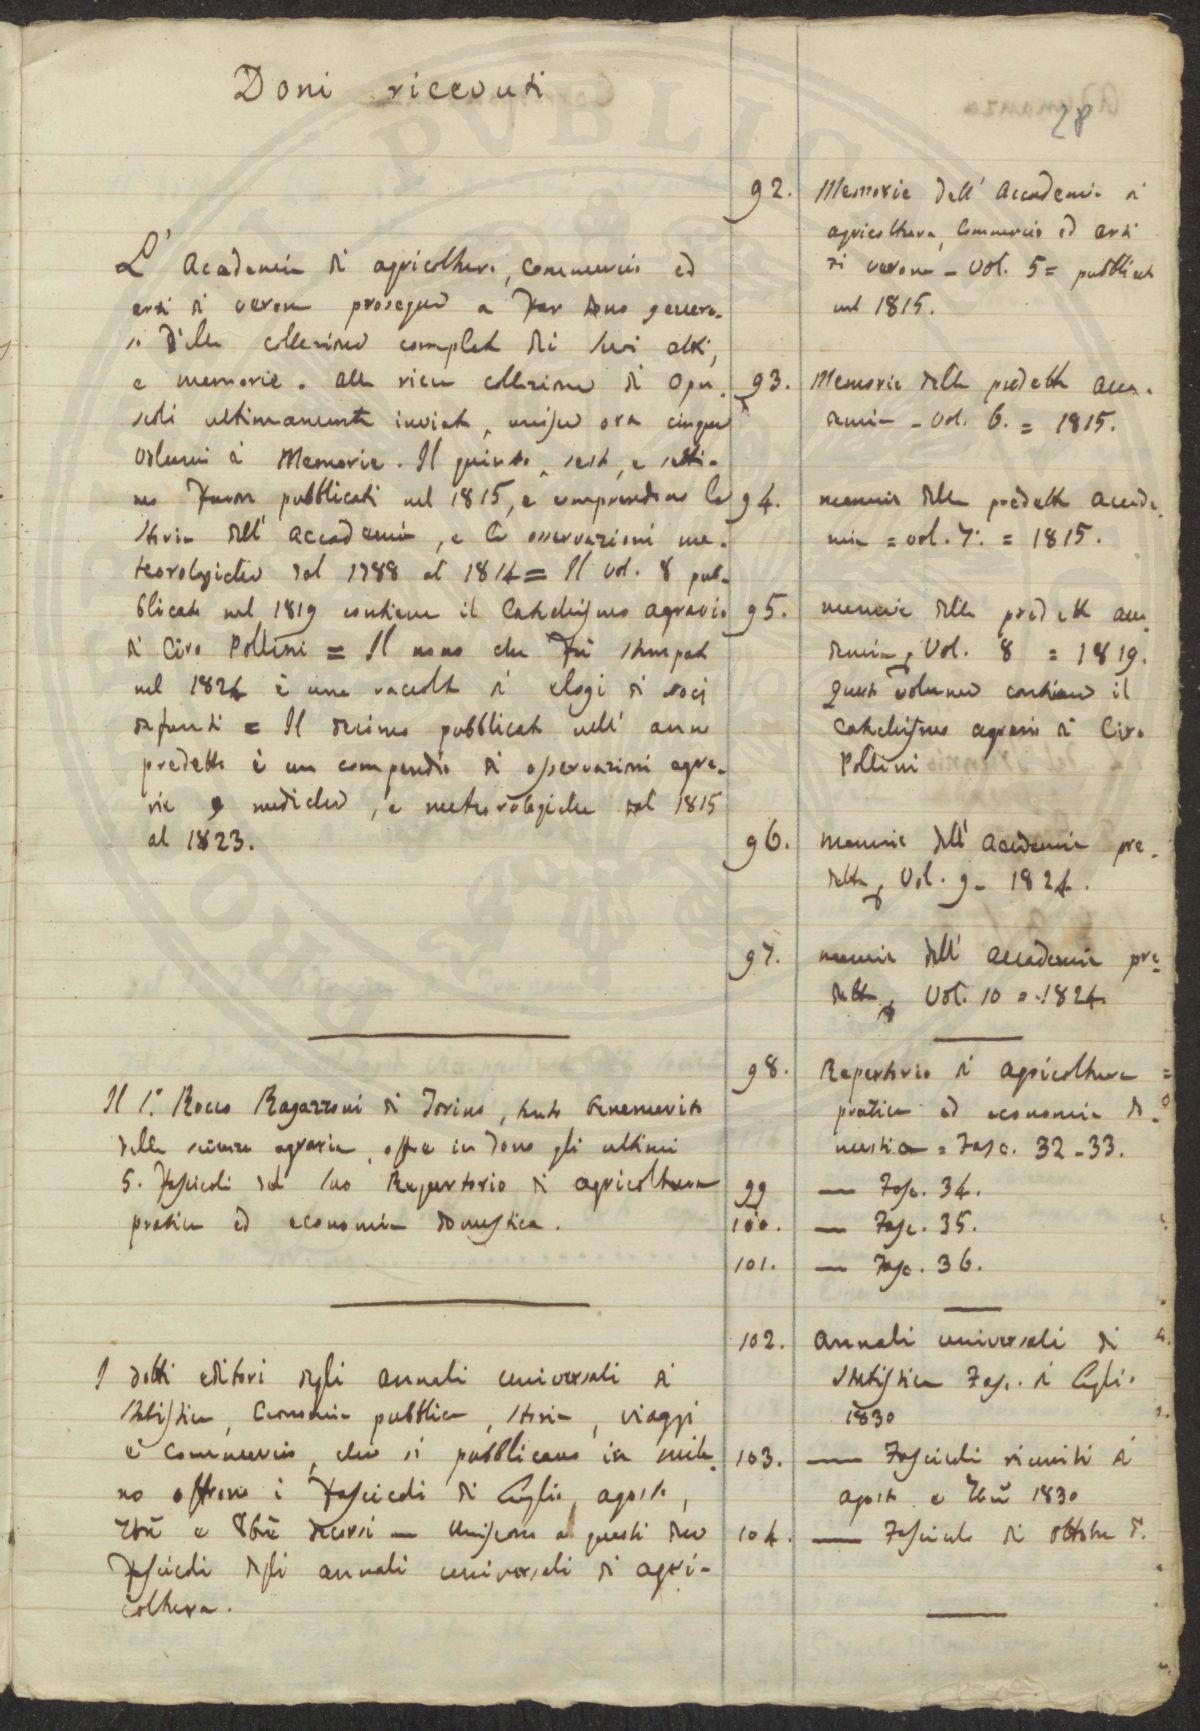 Doni ricevuti
28
L' Academia di agricoltura, commercio ed
arti di verona prosegue a far dono genero-
so della collezione completa dei suoi atti,
e memorie. alla ricca collezione di opu-
scoli ultimamente inviata, unisce ora cinque
volumi di Memorie. Il quinto, sesto, e setti-
mo furon pubblicati nel 1815, e comprendono la
storia dell' accademia, e le osservazioni me-
teorologiche dal 1788 al 1814 = Il vol. 8 pub-
blicato nel 1819 contiene il Catechismo agrario
di Ciro Pollini = Il nono che fu stampato
nel 1824 è una raccolta di elogi di socj
defunti = Il decimo pubblicato nell' anno
predetto è un compendio di osservazioni agra-
rie e mediche, e meteorologiche dal 1815
al 1823.
Il S.r Rocco Ragazzoni di Torino, tanto benemerito
della scienza agraria, offre in dono gli ultimi
5. fascicoli del suo Repertorio di agricoltura
pratica ed economia domestica.
I dotti editori degli annali universali di
statistica, Economia pubblica, storia, viaggi
e commercio, che si pubblicano in mila-
no offrono i fascicoli di luglio, agosto,
7bre e 8bre decorsi — uniscono a questi due
fascicoli degli annali universali di agri-
coltura.
92. Memorie dell' Accademia di
agricoltura, Commercio ed arti
di verona - vol. 5 = pubblicato
nel 1815.
93. Memorie della predetta acca-
demia - vol. 6. = 1815.
94. memorie della predetta accade-
mia = vol. 7. = 1815.
95. memorie della predetta acca-
demia, Vol. 8 = 1819.
Questo volume contiene il
Catechismo agrario di Ciro
Pollini
96. memorie dell' academia pre-
detta, Vol. 9 - 1824.
97. memorie dell' accademia pre=
detta, Vol. 10 = 1824.
98. Repertorio di agricoltura
pratica ed economia do-
mestica = Fasc. 32-33.
99 — Fasc. 34.
100. — Fasc. 35.
101. — Fasc. 36.
102. annali universali di
statistica Fasc. di luglio
1830
103. — Fascicoli riuniti di
agosto e 7bre 1830
104. — Fascicolo di ottobre d.